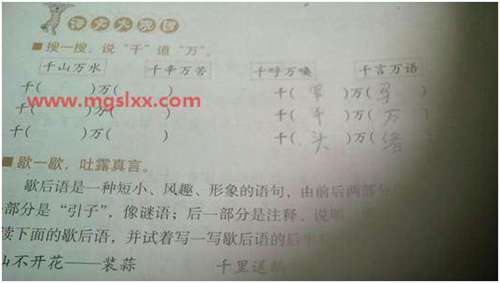 ■搜一搜，说“千”道“万”。
千山万水 千辛万苦 千呼万唤 千言万语
千( )万( ) 千( 军 )万( 马
www.mgslxx.com
千( )万( ) 千( 千 )万( 万
千( )万( ) 千( 头 )万( 绪
■歇一歇，吐露真言。
歇后语是一种短小、风趣、形象的语句，由前后两部分
部分是“引子”，像谜语；后一部分是注释、说明
读下面的歇后语，并试着写一写歇后语的后半
山不开花——装蒜 千里送